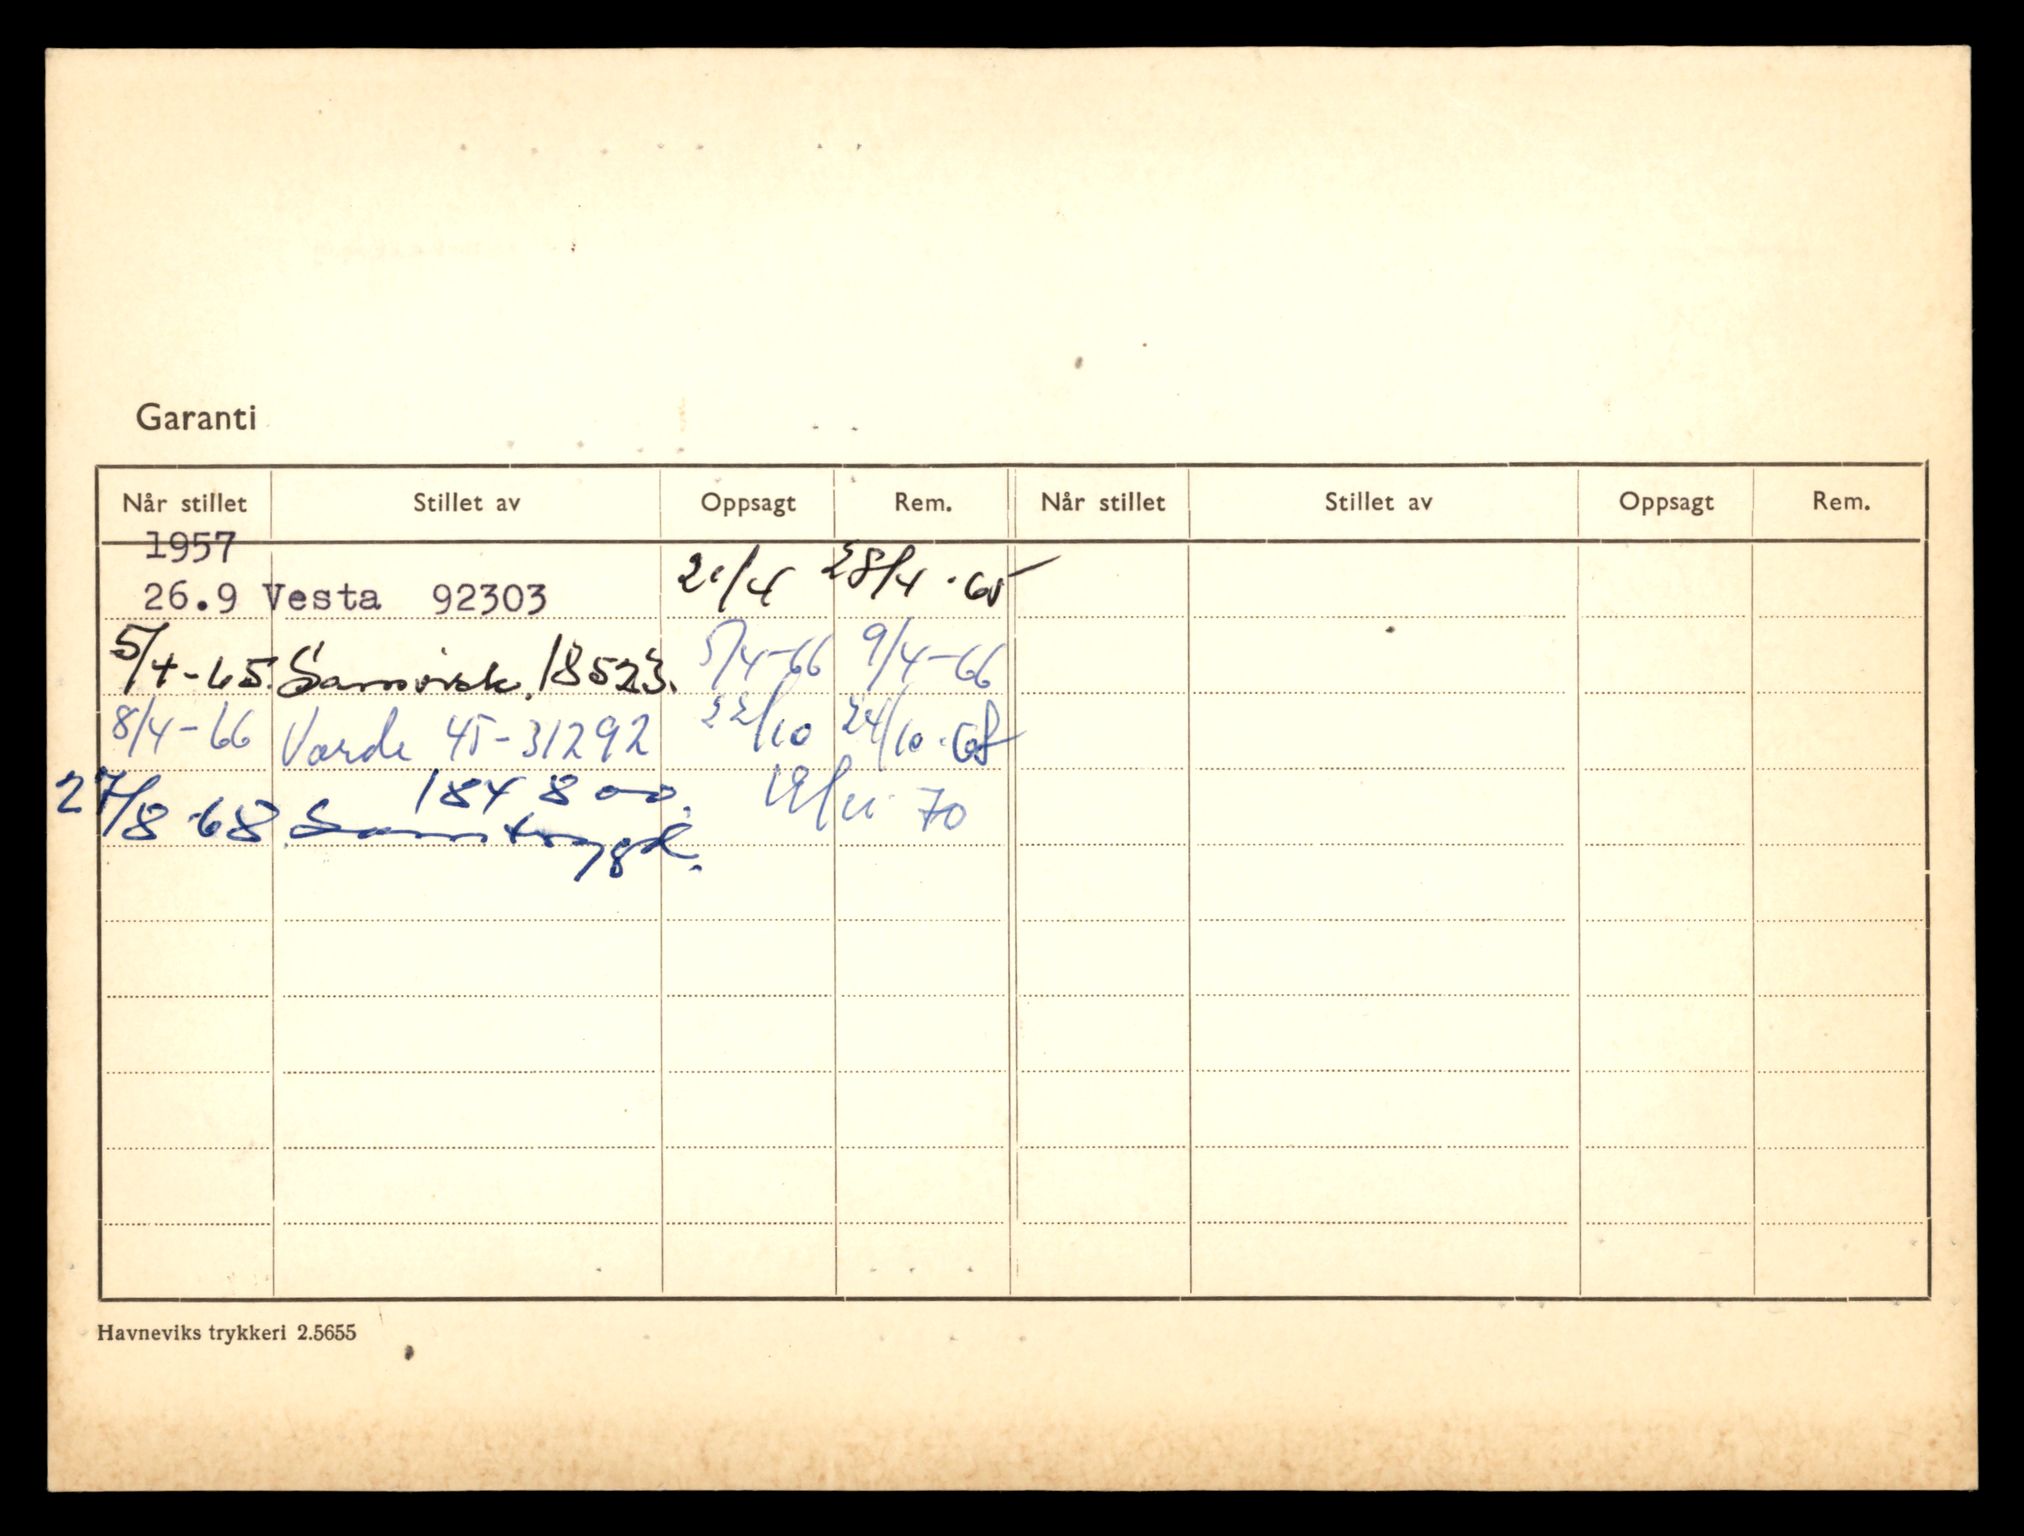 Garanti
Når stillet Stillet av Oppsagt Rem. Når stillet Stillet av Oppsagt Rem.
1957
26.9 Vesta 92303 21/4 28/4-65
5/4-65. Samvirk. 18523. 5/4-66 9/4-66
8/4-66 Varde 45-31292 22/10 24/10-68
27/8-68. 184800. 19/11-70
Samtrygd.
Havneviks trykkeri 2.5655